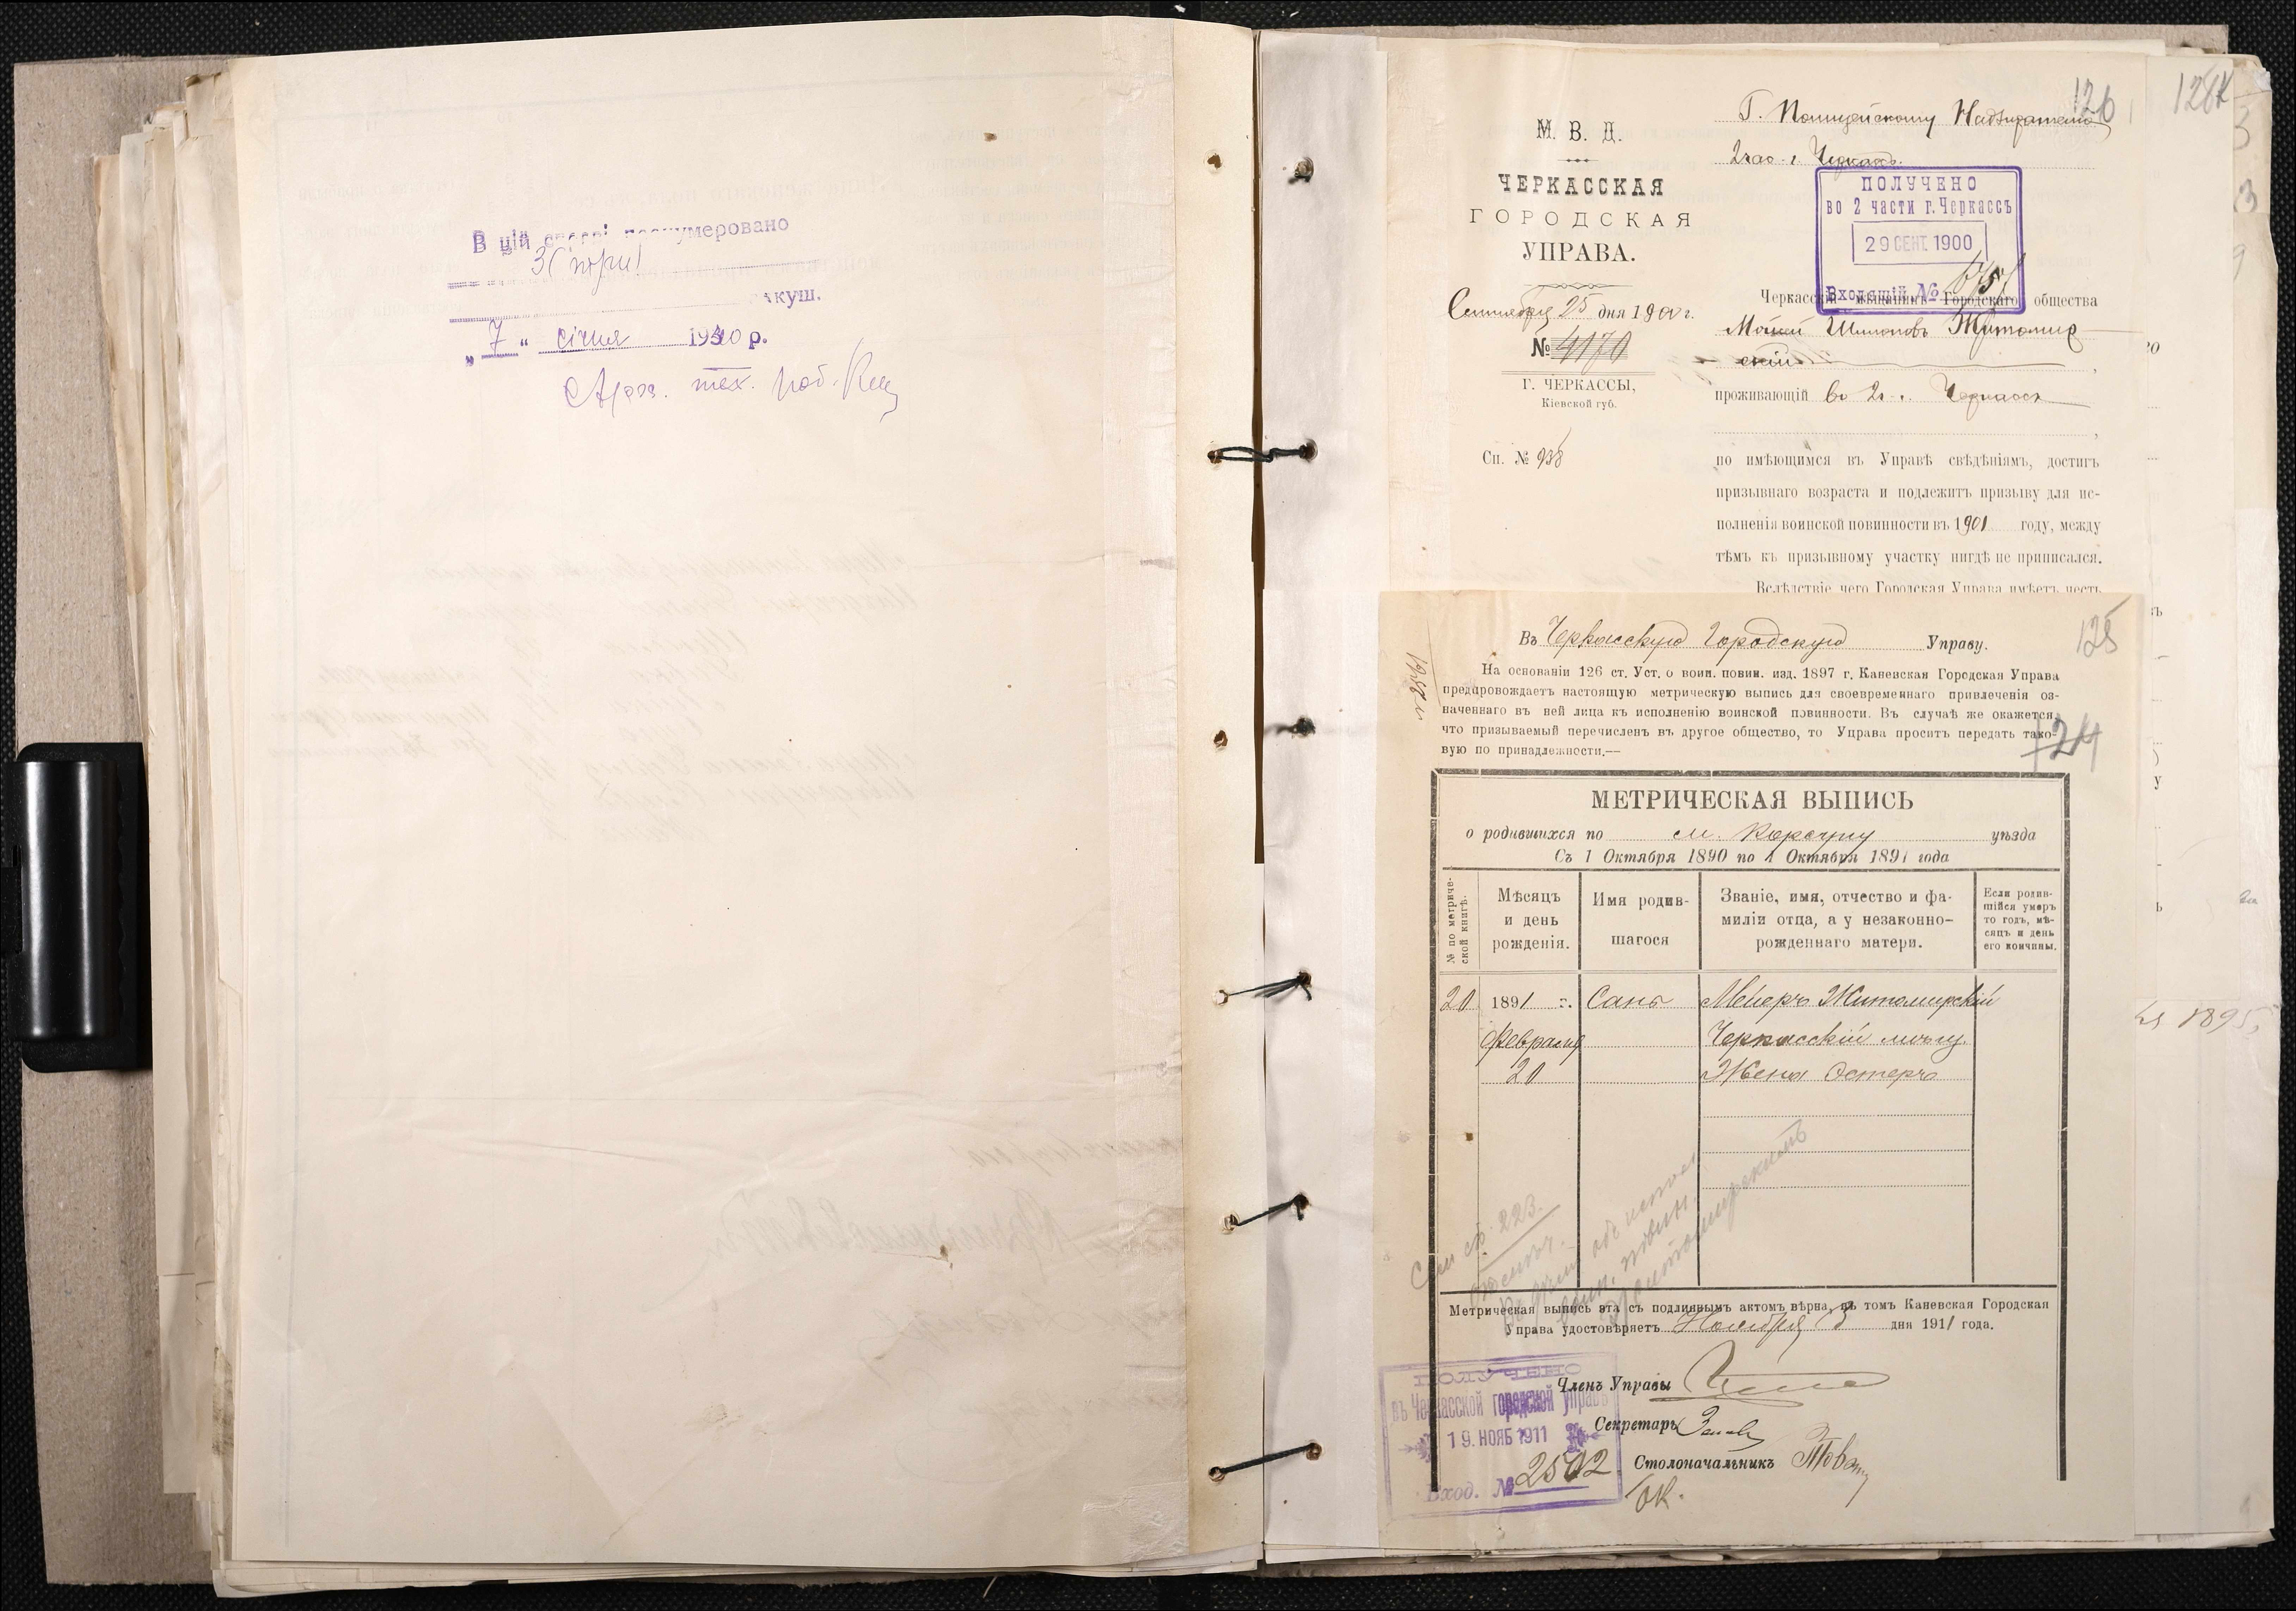 В цій справі пронумеровано
3 (три)
аркуш.
„ 7 “ січня 1940 р.
126
128
М. В. Д.
ЧЕРКАССКАЯ
ГОРОДСКАЯ
УПРАВА.
Сентября 25 дня 1900 г.
№ 4170
Г. ЧЕРКАССЫ,
Кіевской губ.
Сп. № 938
Г. Полицейскому Надзирателю
2 час. г. Черкассъ.
ПОЛУЧЕНО
во 2 части г. Черкассъ
29 СЕНТ. 1900
Входящій №
Черкасскій мѣщанинъ Городскаго общества
Мойсей Шимоновъ Житомир
скій
проживающій во 2 ч. г. Черкассъ
по имѣющимся въ Управѣ свѣдѣніямъ, достигъ
призывнаго возраста и подлежитъ призыву для ис-
полненія воинской повинности въ 1901 году, между
тѣмъ къ призывному участку нигдѣ не приписался.
Вслѣдствіе чего Городская Управа имѣетъ честь
125
Въ Черкасскую Городскую Управу.
На основаніи 126 ст. Уст. о воин. повин. изд. 1897 г. Каневская Городская Управа
предпровождаетъ настоящую метрическую выпись для своевременнаго привлеченія оз-
наченнаго въ ней лица къ исполненію воинской повинности. Въ случаѣ же окажется,
что призываемый перечисленъ въ другое общество, то Управа проситъ передать тако-
вую по принадлежности.—
124
МЕТРИЧЕСКАЯ ВЫПИСЬ
о родившихся по м. Корсуну уѣзда
Съ 1 Октября 1890 по 1 Октября 1891 года
№ по метриче-
ской книгѣ.
Мѣсяцъ
и день
рожденія.
Имя родив-
шагося
Званіе, имя, отчество и фа-
милія отца, а у незаконно-
рожденнаго матери.
Если родив-
шійся умеръ
то годъ, мѣ-
сяцъ и день
его кончины.
20 1891 г. Сань Мейеръ Житомирскій
Февраля Черкасскій мѣщ.
20 Жена Эстеръ
См ст. 223.
Метрическая выпись эта съ подлиннымъ актомъ вѣрна, въ томъ Каневская Городская
Управа удостовѣряетъ Ноября 3 дня 1911 года.
Членъ Управы
Секретарь
Столоначальникъ
ПОЛУЧЕНО
въ Черкасской городской управѣ
19. НОЯБ 1911
Вход. № 2502